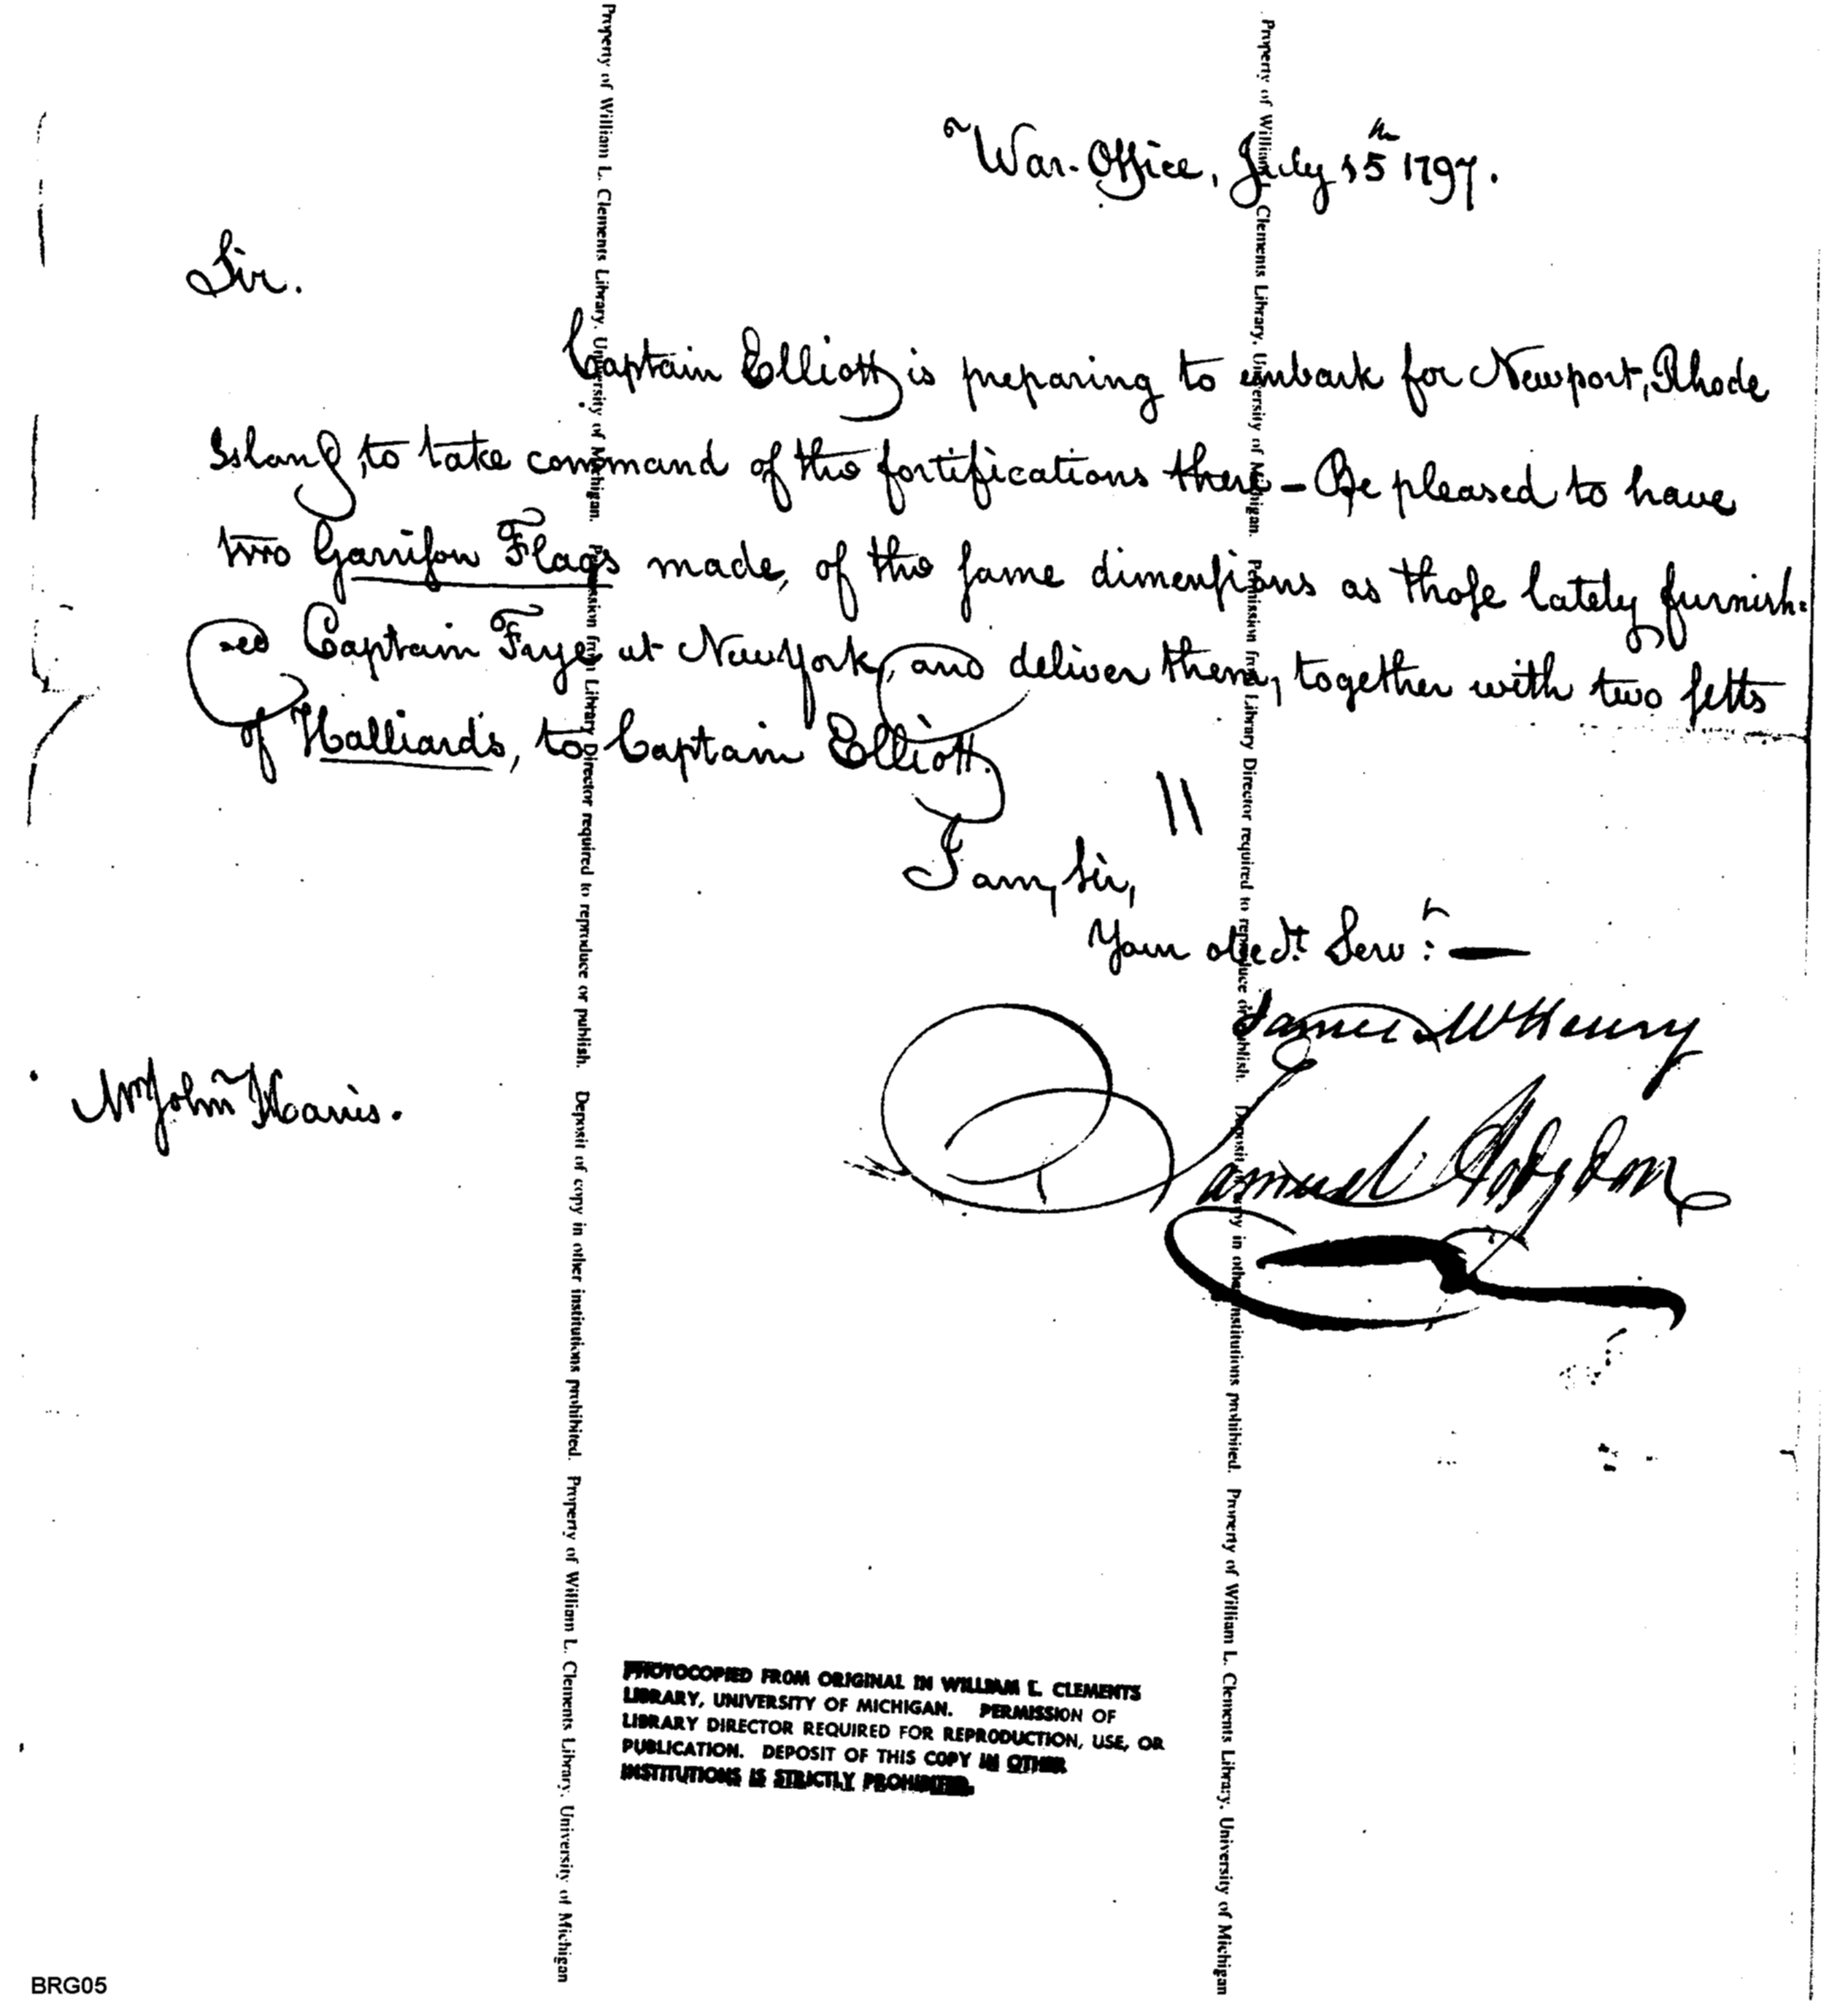 War-Office, July 15th 1797.
Sir.
Captain Elliott is preparing to embark for Newport, Rhode
Island, to take command of the fortifications there - Be pleased to have
two Garrison Flags made, of the same dimensions as those lately furnish=
=ed Captain Frye at New York, and deliver them, together with two setts
of Halliards, to Captain Elliott.
I am, Sir,
Your obedt. Servt. —
James McHenry
Samuel Hodgdon
Mr John Harris.
Property of William L. Clements Library, University of Michigan. Permission from Library Director required to reproduce or publish. Deposit of copy in other institutions prohibited. Property of William L. Clements Library, University of Michigan
Property of William L. Clements Library, University of Michigan. Permission from Library Director required to reproduce or publish. Deposit of copy in other institutions prohibited. Property of William L. Clements Library, University of Michigan
PHOTOCOPIED FROM ORIGINAL IN WILLIAM L. CLEMENTS
LIBRARY, UNIVERSITY OF MICHIGAN. PERMISSION OF
LIBRARY DIRECTOR REQUIRED FOR REPRODUCTION, USE, OR
PUBLICATION. DEPOSIT OF THIS COPY IN OTHER
INSTITUTIONS IS STRICTLY PROHIBITED.
BRG05